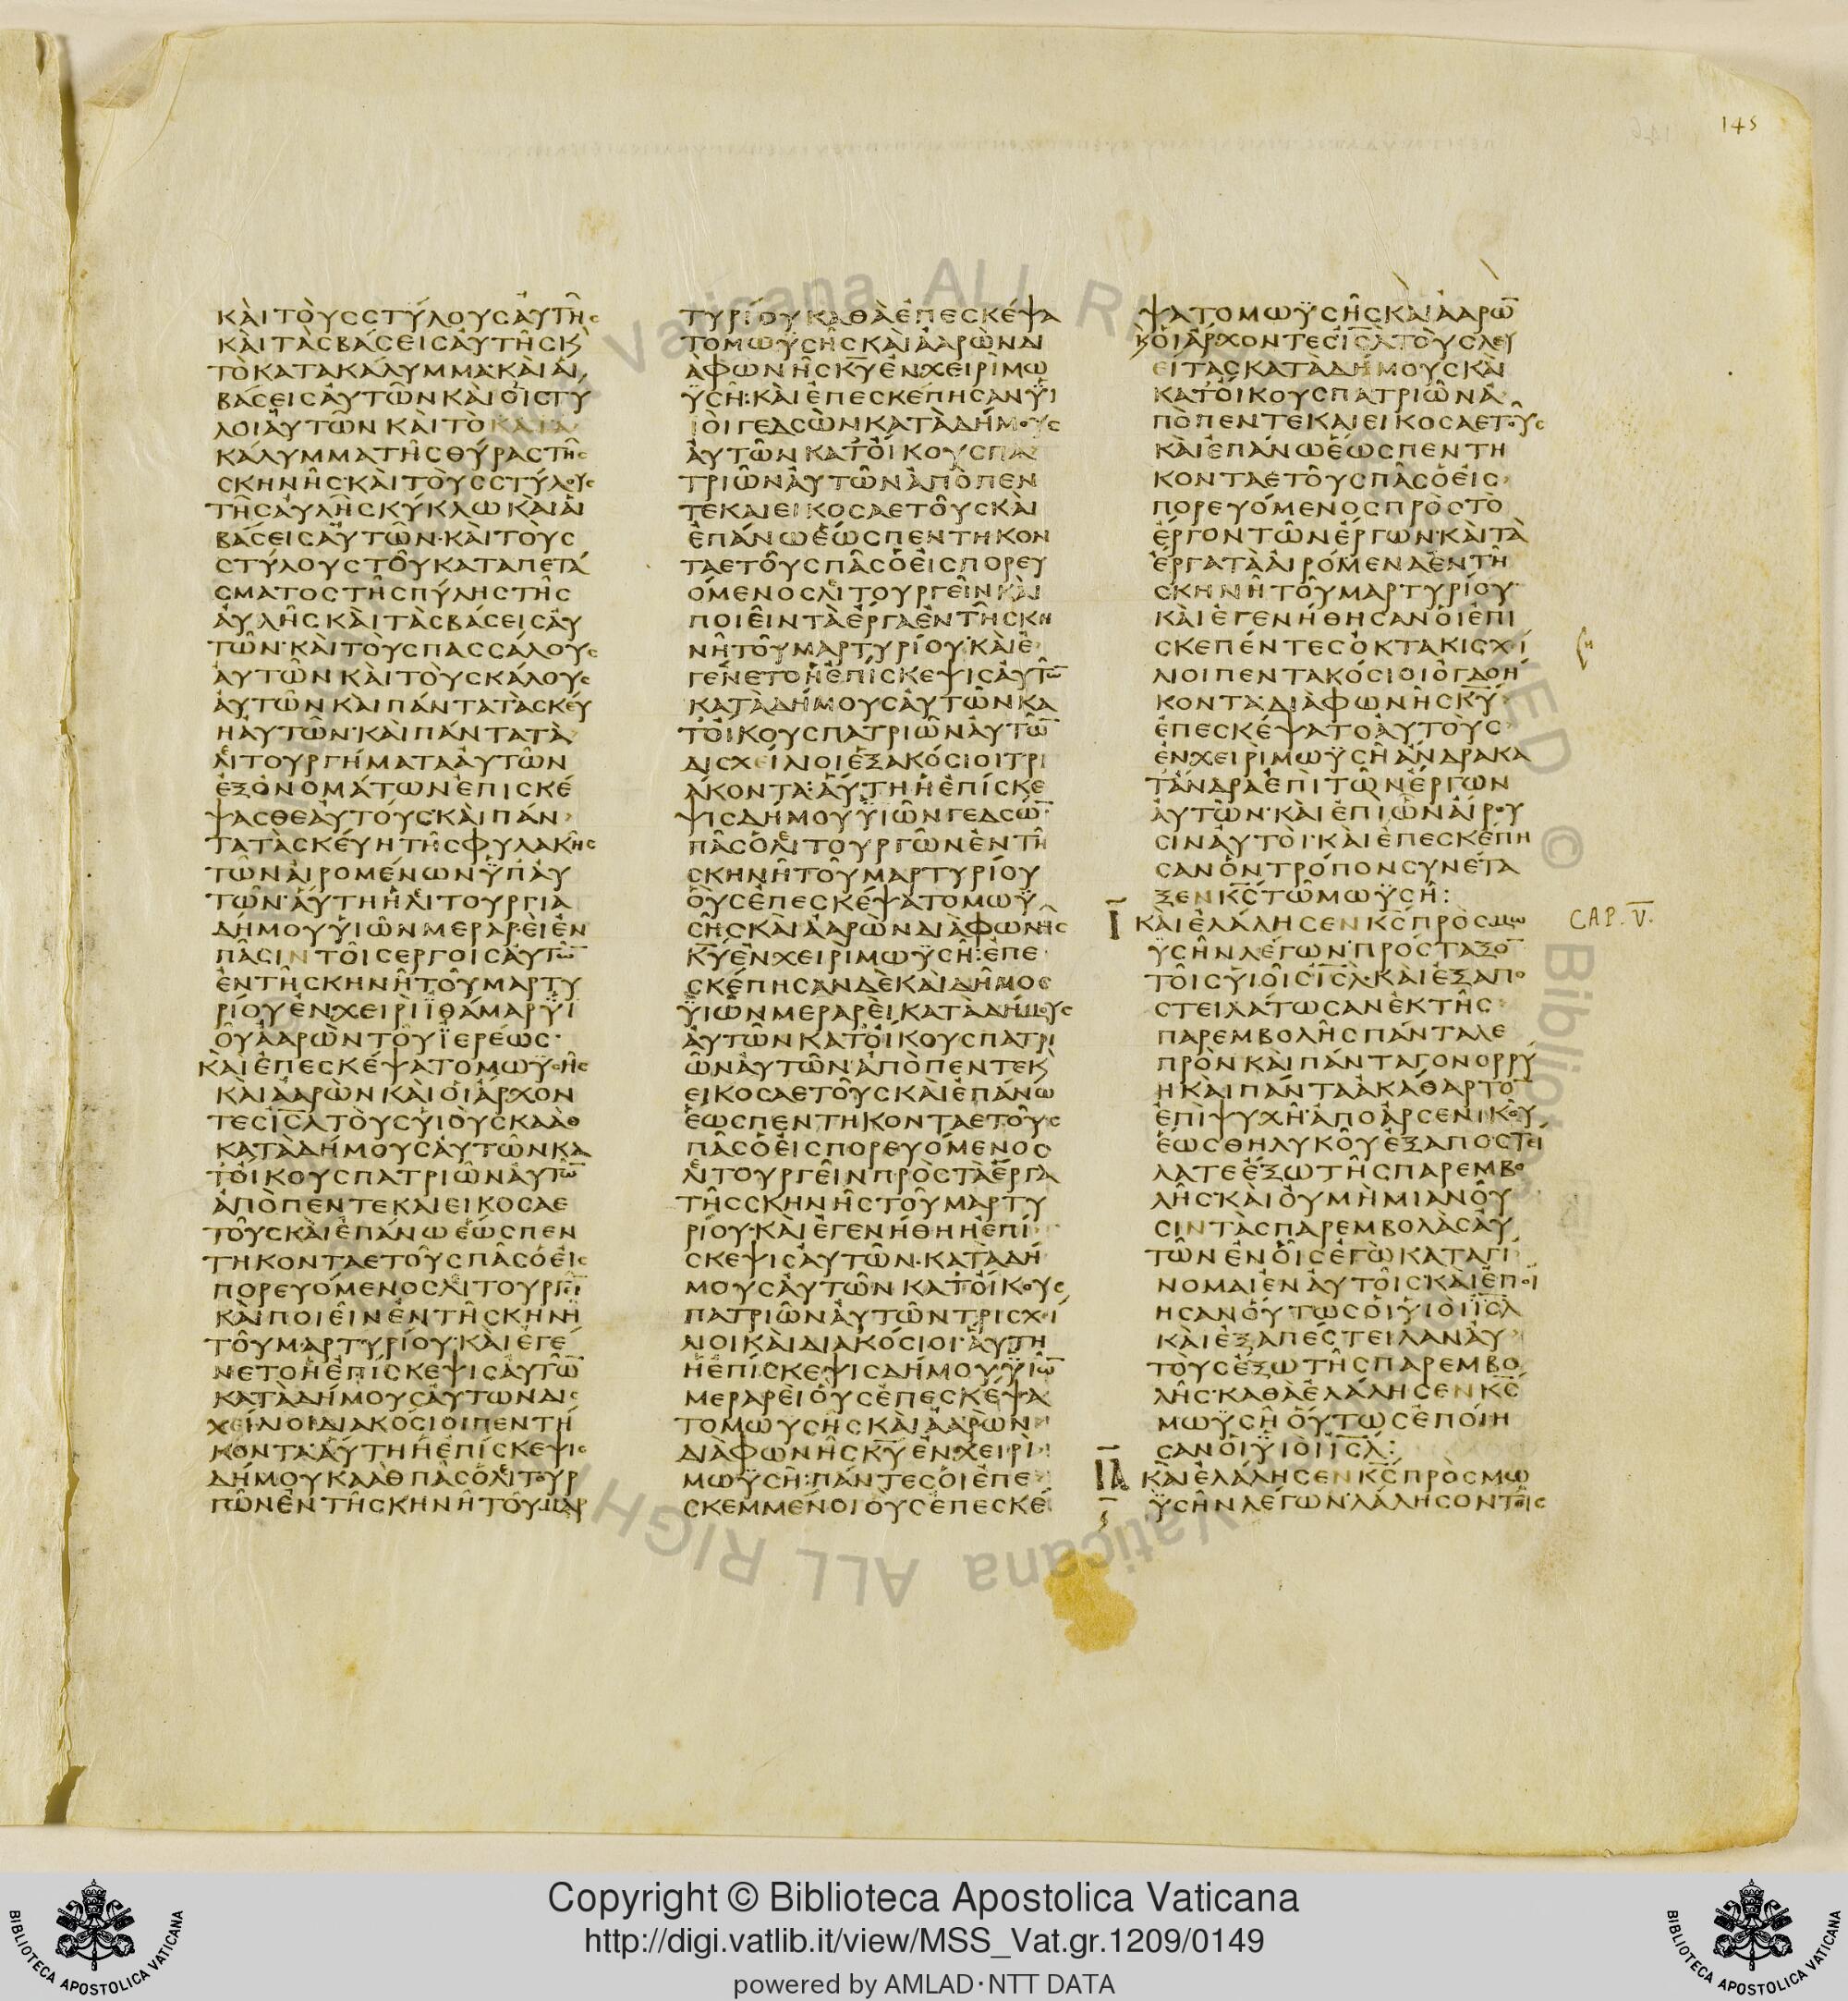 145
ΚΑΙΤΟΥΣΣΤΥΛΟΥΣΑΥΤΗΣ
ΚΑΙΤΑΣΒΑΣΕΙΣΑΥΤΗΣΚ
ΤΟΚΑΤΑΚΑΛΥΜΜΑΚΑΙΑΙ
ΒΑΣΕΙΣΑΥΤΩΝΚΑΙΟΙΣΤΥ
ΛΟΙΑΥΤΩΝΚΑΙΤΟΚΑΤΑ
ΚΑΛΥΜΜΑΤΗΣΘΥΡΑΣΤΗΣ
ΣΚΗΝΗΣΚΑΙΤΟΥΣΣΤΥΛΟΥΣ
ΤΗΣΑΥΛΗΣΚΥΚΛΩΚΑΙΑΙ
ΒΑΣΕΙΣΑΥΤΩΝ·ΚΑΙΤΟΥΣ
ΣΤΥΛΟΥΣΤΟΥΚΑΤΑΠΕΤΑ
ΣΜΑΤΟΣΤΗΣΠΥΛΗΣΤΗΣ
ΑΥΛΗΣΚΑΙΤΑΣΒΑΣΕΙΣΑΥ
ΤΩΝ·ΚΑΙΤΟΥΣΠΑΣΣΑΛΟΥΣ
ΑΥΤΩΝΚΑΙΤΟΥΣΚΑΛΟΥΣ
ΑΥΤΩΝΚΑΙΠΑΝΤΑΤΑΣΚΕΥ
ΗΑΥΤΩΝ·ΚΑΙΠΑΝΤΑΤΑ
ΛΙΤΟΥΡΓΗΜΑΤΑΑΥΤΩΝ
ΕΞΟΝΟΜΑΤΩΝΕΠΙΣΚΕ
ΨΑΣΘΕΑΥΤΟΥΣ·ΚΑΙΠΑΝ
ΤΑΤΑΣΚΕΥΗΤΗΣΦΥΛΑΚΗΣ
ΤΩΝΑΙΡΟΜΕΝΩΝΫΠΑΥ
ΤΩΝ·ΑΥΤΗΗΛΙΤΟΥΡΓΙΑ
ΔΗΜΟΥΥΙΩΝΜΕΡΑΡΕΙΕΝ
ΠΑΣΙΝΤΟΙΣΕΡΓΟΙΣΑΥΤΩ̅
ΕΝΤΗΣΚΗΝΗΤΟΥΜΑΡΤΥ
ΡΙΟΥΕΝΧΕΙΡΙΪΘΑΜΑΡΥΙ
ΟΥΑΑΡΩΝΤΟΥΪΕΡΕΩΣ·
ΚΑΙΕΠΕΣΚΕΨΑΤΟΜΩΫΣΗΣ
ΚΑΙΑΑΡΩΝΚΑΙΟΙΑΡΧΟΝ
ΤΕΣΙ̅Σ̅Λ̅ΤΟΥΣΥΙΟΥΣΚΑΑΘ
ΚΑΤΑΔΗΜΟΥΣΑΥΤΩΝΚΑ
ΤΟΙΚΟΥΣΠΑΤΡΙΩΝΑΥΤΩ̅
ΑΠΟΠΕΝΤΕΚΑΙΕΙΚΟΣΑΕ
ΤΟΥΣΚΑΙΕΠΑΝΩΕΩΣΠΕΝ
ΤΗΚΟΝΤΑΕΤΟΥΣΠΑΣΟΕΙΣ
ΠΟΡΕΥΟΜΕΝΟΣΛΙΤΟΥΡΓΕΙ̅
ΚΑΙΠΟΙΕΙΝΕΝΤΗΣΚΗΝΗ
ΤΟΥΜΑΡΤΥΡΙΟΥ·ΚΑΙΕΓΕ
ΝΕΤΟΗΕΠΙΣΚΕΨΙΣΑΥΤΩ̅
ΚΑΤΑΔΗΜΟΥΣΑΥΤΩΝΔΙΣ
ΧΕΙΛΙΟΙΔΙΑΚΟΣΙΟΙΠΕΝΤΗ
ΚΟΝΤΑ·ΑΥΤΗΗΕΠΙΣΚΕΨΙΣ
ΔΗΜΟΥΚΑΑΘΠΑΣΟΛΙΤΟΥΡ
ΓΩΝΕΝΤΗΣΚΗΝΗΤΟΥΜΑΡ
ΤΥΡΙΟΥΚΑΘΑΕΠΕΣΚΕΨΑ
ΤΟΜΩΫΣΗΣΚΑΙΑΑΡΩΝΔΙ
ΑΦΩΝΗΣΚ̅Υ̅ΕΝΧΕΙΡΙΜΩ
ΫΣΗ:ΚΑΙΕΠΕΣΚΕΠΗΣΑΝΫΙ
ΟΙΓΕΔΣΩΝΚΑΤΑΔΗΜΟΥΣ
ΑΥΤΩΝΚΑΤΟΙΚΟΥΣΠΑ
ΤΡΙΩΝΑΥΤΩΝΑΠΟΠΕΝ
ΤΕΚΑΙΕΙΚΟΣΑΕΤΟΥΣΚΑΙ
ΕΠΑΝΩΕΩΣΠΕΝΤΗΚΟΝ
ΤΑΕΤΟΥΣΠΑΣΟΕΙΣΠΟΡΕΥ
ΟΜΕΝΟΣΛΙΤΟΥΡΓΕΙΝΚΑΙ
ΠΟΙΕΙΝΤΑΕΡΓΑΕΝΤΗΣΚΗ
ΝΗΤΟΥΜΑΡΤΥΡΙΟΥ·ΚΑΙΕ
ΓΕΝΕΤΟΗΕΠΙΣΚΕΨΙΣΑΥΤΩ̅
ΚΑΤΑΔΗΜΟΥΣΑΥΤΩΝΚΑ
ΤΟΙΚΟΥΣΠΑΤΡΙΩΝΑΥΤΩ̅
ΔΙΣΧΕΙΛΙΟΙΕΞΑΚΟΣΙΟΙΤΡΙ
ΑΚΟΝΤΑ:ΑΥΤΗΗΕΠΙΣΚΕ
ΨΙΣΔΗΜΟΥΫΙΩΝΓΕΔΣΩ̅
ΠΑΣΟΛΙΤΟΥΡΓΩΝΕΝΤΗ
ΣΚΗΝΗΤΟΥΜΑΡΤΥΡΙΟΥ
ΟΥΣΕΠΕΣΚΕΨΑΤΟΜΩΫ
ΣΗΣΚΑΙΑΑΡΩΝΔΙΑΦΩΝΗΣ
Κ̅Υ̅ΕΝΧΕΙΡΙΜΩΫΣΗ:ΕΠΕ
ΣΚΕΠΗΣΑΝΔΕΚΑΙΔΗΜΟΣ
ΫΙΩΝΜΕΡΑΡΕΙΚΑΤΑΔΗΜΟΥΣ
ΑΥΤΩΝΚΑΤΟΙΚΟΥΣΠΑΤΡΙ
ΩΝΑΥΤΩΝ·ΑΠΟΠΕΝΤΕΚ
ΕΙΚΟΣΑΕΤΟΥΣΚΑΙΕΠΑΝΩ
ΕΩΣΠΕΝΤΗΚΟΝΤΑΕΤΟΥΣ
ΠΑΣΟΕΙΣΠΟΡΕΥΟΜΕΝΟΣ
ΛΙΤΟΥΡΓΕΙΝΠΡΟΣΤΑΕΡΓΑ
ΤΗΣΣΚΗΝΗΣΤΟΥΜΑΡΤΥ
ΡΙΟΥ·ΚΑΙΕΓΕΝΗΘΗΗΕΠΙ
ΣΚΕΨΙΣΑΥΤΩΝ·ΚΑΤΑΔΗ
ΜΟΥΣΑΥΤΩΝΚΑΤΟΙΚΟΥΣ
ΠΑΤΡΙΩΝΑΥΤΩΝΤΡΙΣΧΙ
ΛΙΟΙΚΑΙΔΙΑΚΟΣΙΟΙ·ΑΥΤΗ
ΗΕΠΙΣΚΕΨΙΣΔΗΜΟΥΫΙΩ̅
ΜΕΡΑΡΕΙΟΥΣΕΠΕΣΚΕΨΑ
ΤΟΜΩΥΣΗΣΚΑΙΑΑΡΩΝ
ΔΙΑΦΩΝΗΣΚ̅Υ̅ΕΝΧΕΙΡΙ
ΜΩΫΣΗ:ΠΑΝΤΕΣΟΙΕΠΕ
ΣΚΕΜΜΕΝΟΙΟΥΣΕΠΕΣΚΕ
ΨΑΤΟΜΩΫΣΗΣΚΑΙΑΑΡΩ̅
ΚΟΙΑΡΧΟΝΤΕΣΙ̅Σ̅Λ̅ΤΟΥΣΛΕΥ
ΕΙΤΑΣΚΑΤΑΔΗΜΟΥΣΚΑΙ
ΚΑΤΟΙΚΟΥΣΠΑΤΡΙΩΝΑ
ΠΟΠΕΝΤΕΚΑΙΕΙΚΟΣΑΕΤΟΥΣ
ΚΑΙΕΠΑΝΩΕΩΣΠΕΝΤΗ
ΚΟΝΤΑΕΤΟΥΣΠΑΣΟΕΙΣ
ΠΟΡΕΥΟΜΕΝΟΣΠΡΟΣΤΟ
ΕΡΓΟΝΤΩΝΕΡΓΩΝ·ΚΑΙΤΑ
ΕΡΓΑΤΑΑΙΡΟΜΕΝΑΕΝΤΗ
ΣΚΗΝΗΤΟΥΜΑΡΤΥΡΙΟΥ
ΚΑΙΕΓΕΝΗΘΗΣΑΝΟΙΕΠΙ
ΣΚΕΠΕΝΤΕΣΟΚΤΑΚΙΣΧΙ
ΛΙΟΙΠΕΝΤΑΚΟΣΙΟΙΟΓΔΟΗ
ΚΟΝΤΑ·ΔΙΑΦΩΝΗΣΚ̅Υ̅
ΕΠΕΣΚΕΨΑΤΟΑΥΤΟΥΣ
ΕΝΧΕΙΡΙΜΩΫΣΗΑΝΔΡΑΚΑ
ΤΑΝΔΡΑΕΠΙΤΩΝΕΡΓΩΝ
ΑΥΤΩΝ·ΚΑΙΕΠΙΩΝΑΙΡΟΥ
ΣΙΝΑΥΤΟΙ·ΚΑΙΕΠΕΣΚΕΠΗ
ΣΑΝΟΝΤΡΟΠΟΝΣΥΝΕΤΑ
ΞΕΝΚ̅Σ̅ΤΩΜΩΫΣΗ:
Ι̅ ΚΑΙΕΛΑΛΗΣΕΝΚ̅Σ̅ΠΡΟΣΜΩ CAP. V.
ΫΣΗΝΛΕΓΩΝ·ΠΡΟΣΤΑΞΟ̅
ΤΟΙΣΥΙΟΙΣΙ̅Σ̅Λ̅·ΚΑΙΕΞΑΠΟ
ΣΤΕΙΛΑΤΩΣΑΝΕΚΤΗΣ
ΠΑΡΕΜΒΟΛΗΣΠΑΝΤΑΛΕ
ΠΡΟΝΚΑΙΠΑΝΤΑΓΟΝΟΡΡΥ
ΗΚΑΙΠΑΝΤΑΑΚΑΘΑΡΤΟ̅
ΕΠΙΨΥΧΗ·ΑΠΟΑΡΣΕΝΙΚΟΥ
ΕΩΣΘΗΛΥΚΟΥΕΞΑΠΟΣΤΕΙ
ΛΑΤΕΕΞΩΤΗΣΠΑΡΕΜΒΟ
ΛΗΣ·ΚΑΙΟΥΜΗΜΙΑΝΟΥ
ΣΙΝΤΑΣΠΑΡΕΜΒΟΛΑΣΑΥ
ΤΩΝΕΝΟΙΣΕΓΩΚΑΤΑΓΙ
ΝΟΜΑΙΕΝΑΥΤΟΙΣ·ΚΑΙΕΠΟΙ
ΗΣΑΝΟΥΤΩΣΟΙΥΙΟΙΙ̅Σ̅Λ̅
ΚΑΙΕΞΑΠΕΣΤΕΙΛΑΝΑΥ
ΤΟΥΣΕΞΩΤΗΣΠΑΡΕΜΒΟ
ΛΗΣ·ΚΑΘΑΕΛΑΛΗΣΕΝΚ̅Σ̅
ΜΩΫΣΗΟΥΤΩΣΕΠΟΙΗ
ΣΑΝΟΙΫΙΟΙΙ̅Σ̅Λ̅:
Ι̅Α̅ ΚΑΙΕΛΑΛΗΣΕΝΚ̅Σ̅ΠΡΟΣΜΩ
ΫΣΗΝΛΕΓΩΝ·ΛΑΛΗΣΟΝΤΟΙΣ
Vaticana ALL RIGHTS RESERVED © Biblioteca Vaticana ALL RIGHTS
Copyright © Biblioteca Apostolica Vaticana
http://digi.vatlib.it/view/MSS_Vat.gr.1209/0149
powered by AMLAD·NTT DATA
BIBLIOTECA APOSTOLICA VATICANA
BIBLIOTECA APOSTOLICA VATICANA